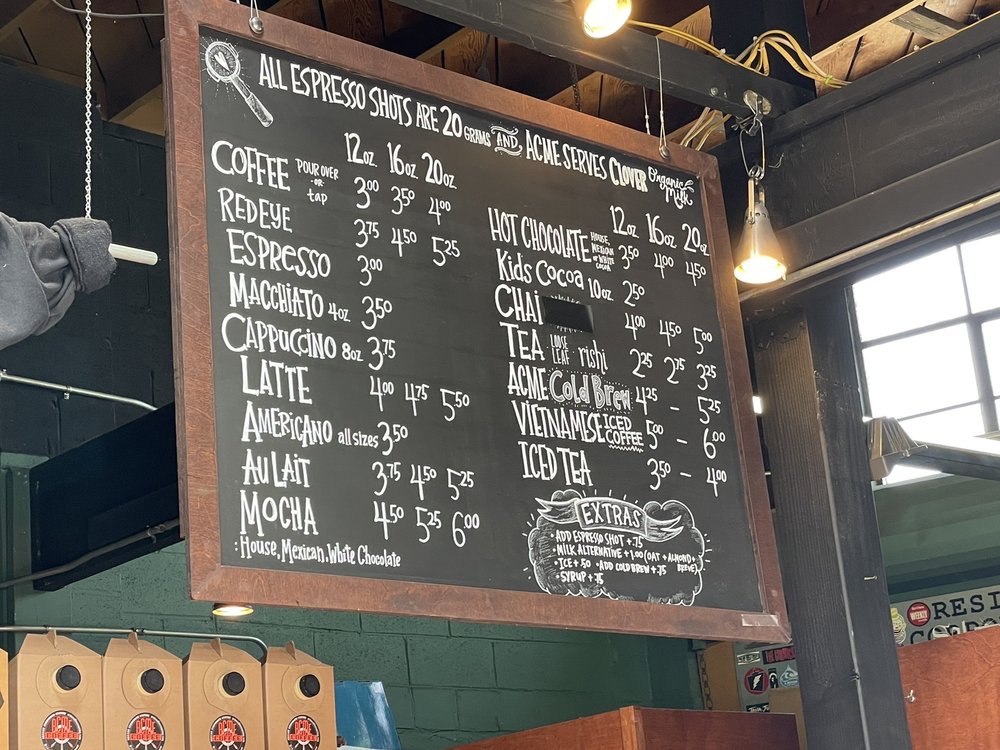 ALL ESPRESSO SHOTS ARE 20 GRAMS AND ACME SERVES CLOVER Organic Milk
12oz. 16oz. 20oz.
COFFEE POUR OVER -or- tap 3.00 3.50 4.00
REDEYE 3.75 4.50 5.25
ESPRESSO 3.00
MACCHIATO 4oz. 3.50
CAPPUCCINO 8oz 3.75
LATTE 4.00 4.75 5.50
AMERICANO all sizes 3.50
AU LAIT 3.75 4.50 5.25
MOCHA 4.50 5.25 6.00
: House, Mexican, White Chocolate
12oz. 16oz. 20oz
HOT CHOCOLATE HOUSE, MEXICAN or WHITE COCOA 3.50 4.00 4.50
Kids Cocoa 10oz. 2.50
CHAI 4.00 4.50 5.00
TEA LOOSE LEAF rishi 2.25 2.75 3.25
ACME Cold Brew 4.25 - 5.25
VIETNAMESE ICED COFFEE 5.00 - 6.00
ICED TEA 3.50 - 4.00
EXTRAS
• ADD ESPRESSO SHOT +.75
• MILK ALTERNATIVE +1.00 (OAT + ALMOND + BREVE)
• ICE +.50 • ADD COLD BREW +.75
• SYRUP +.75
ACME COFFEE
ACME COFFEE
ACME COFFEE
ACME COFFEE
WEEKLY
RESI